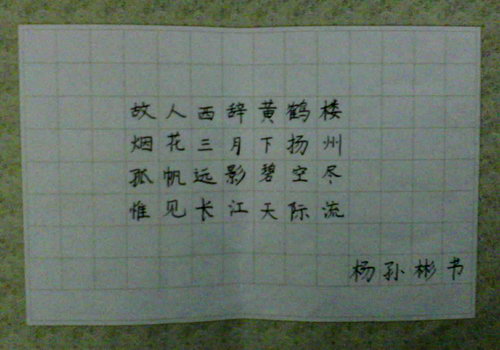 故人西辞黄鹤楼
烟花三月下扬州
孤帆远影碧空尽
惟见长江天际流
杨孙彬书